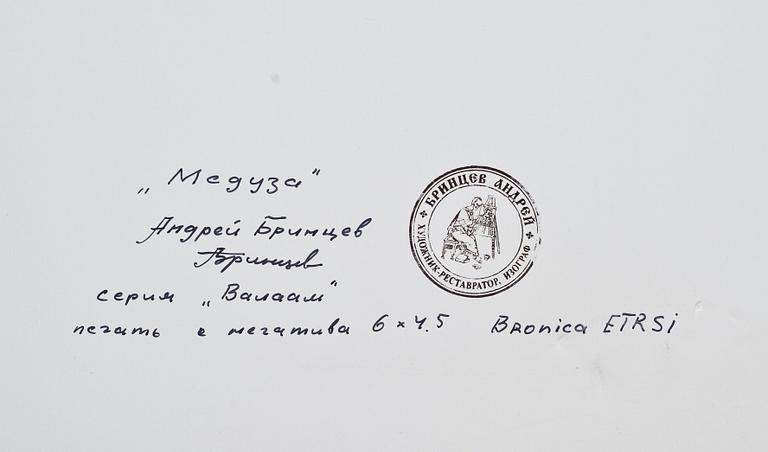 „Медуза"
Андрей Бринцев
Бринцев
серия „Валаам"
печать с негатива 6×4.5 Bronica ETRSi
БРИНЦЕВ АНДРЕЙ
ХУДОЖНИК-РЕСТАВРАТОР, ИЗОГРАФ